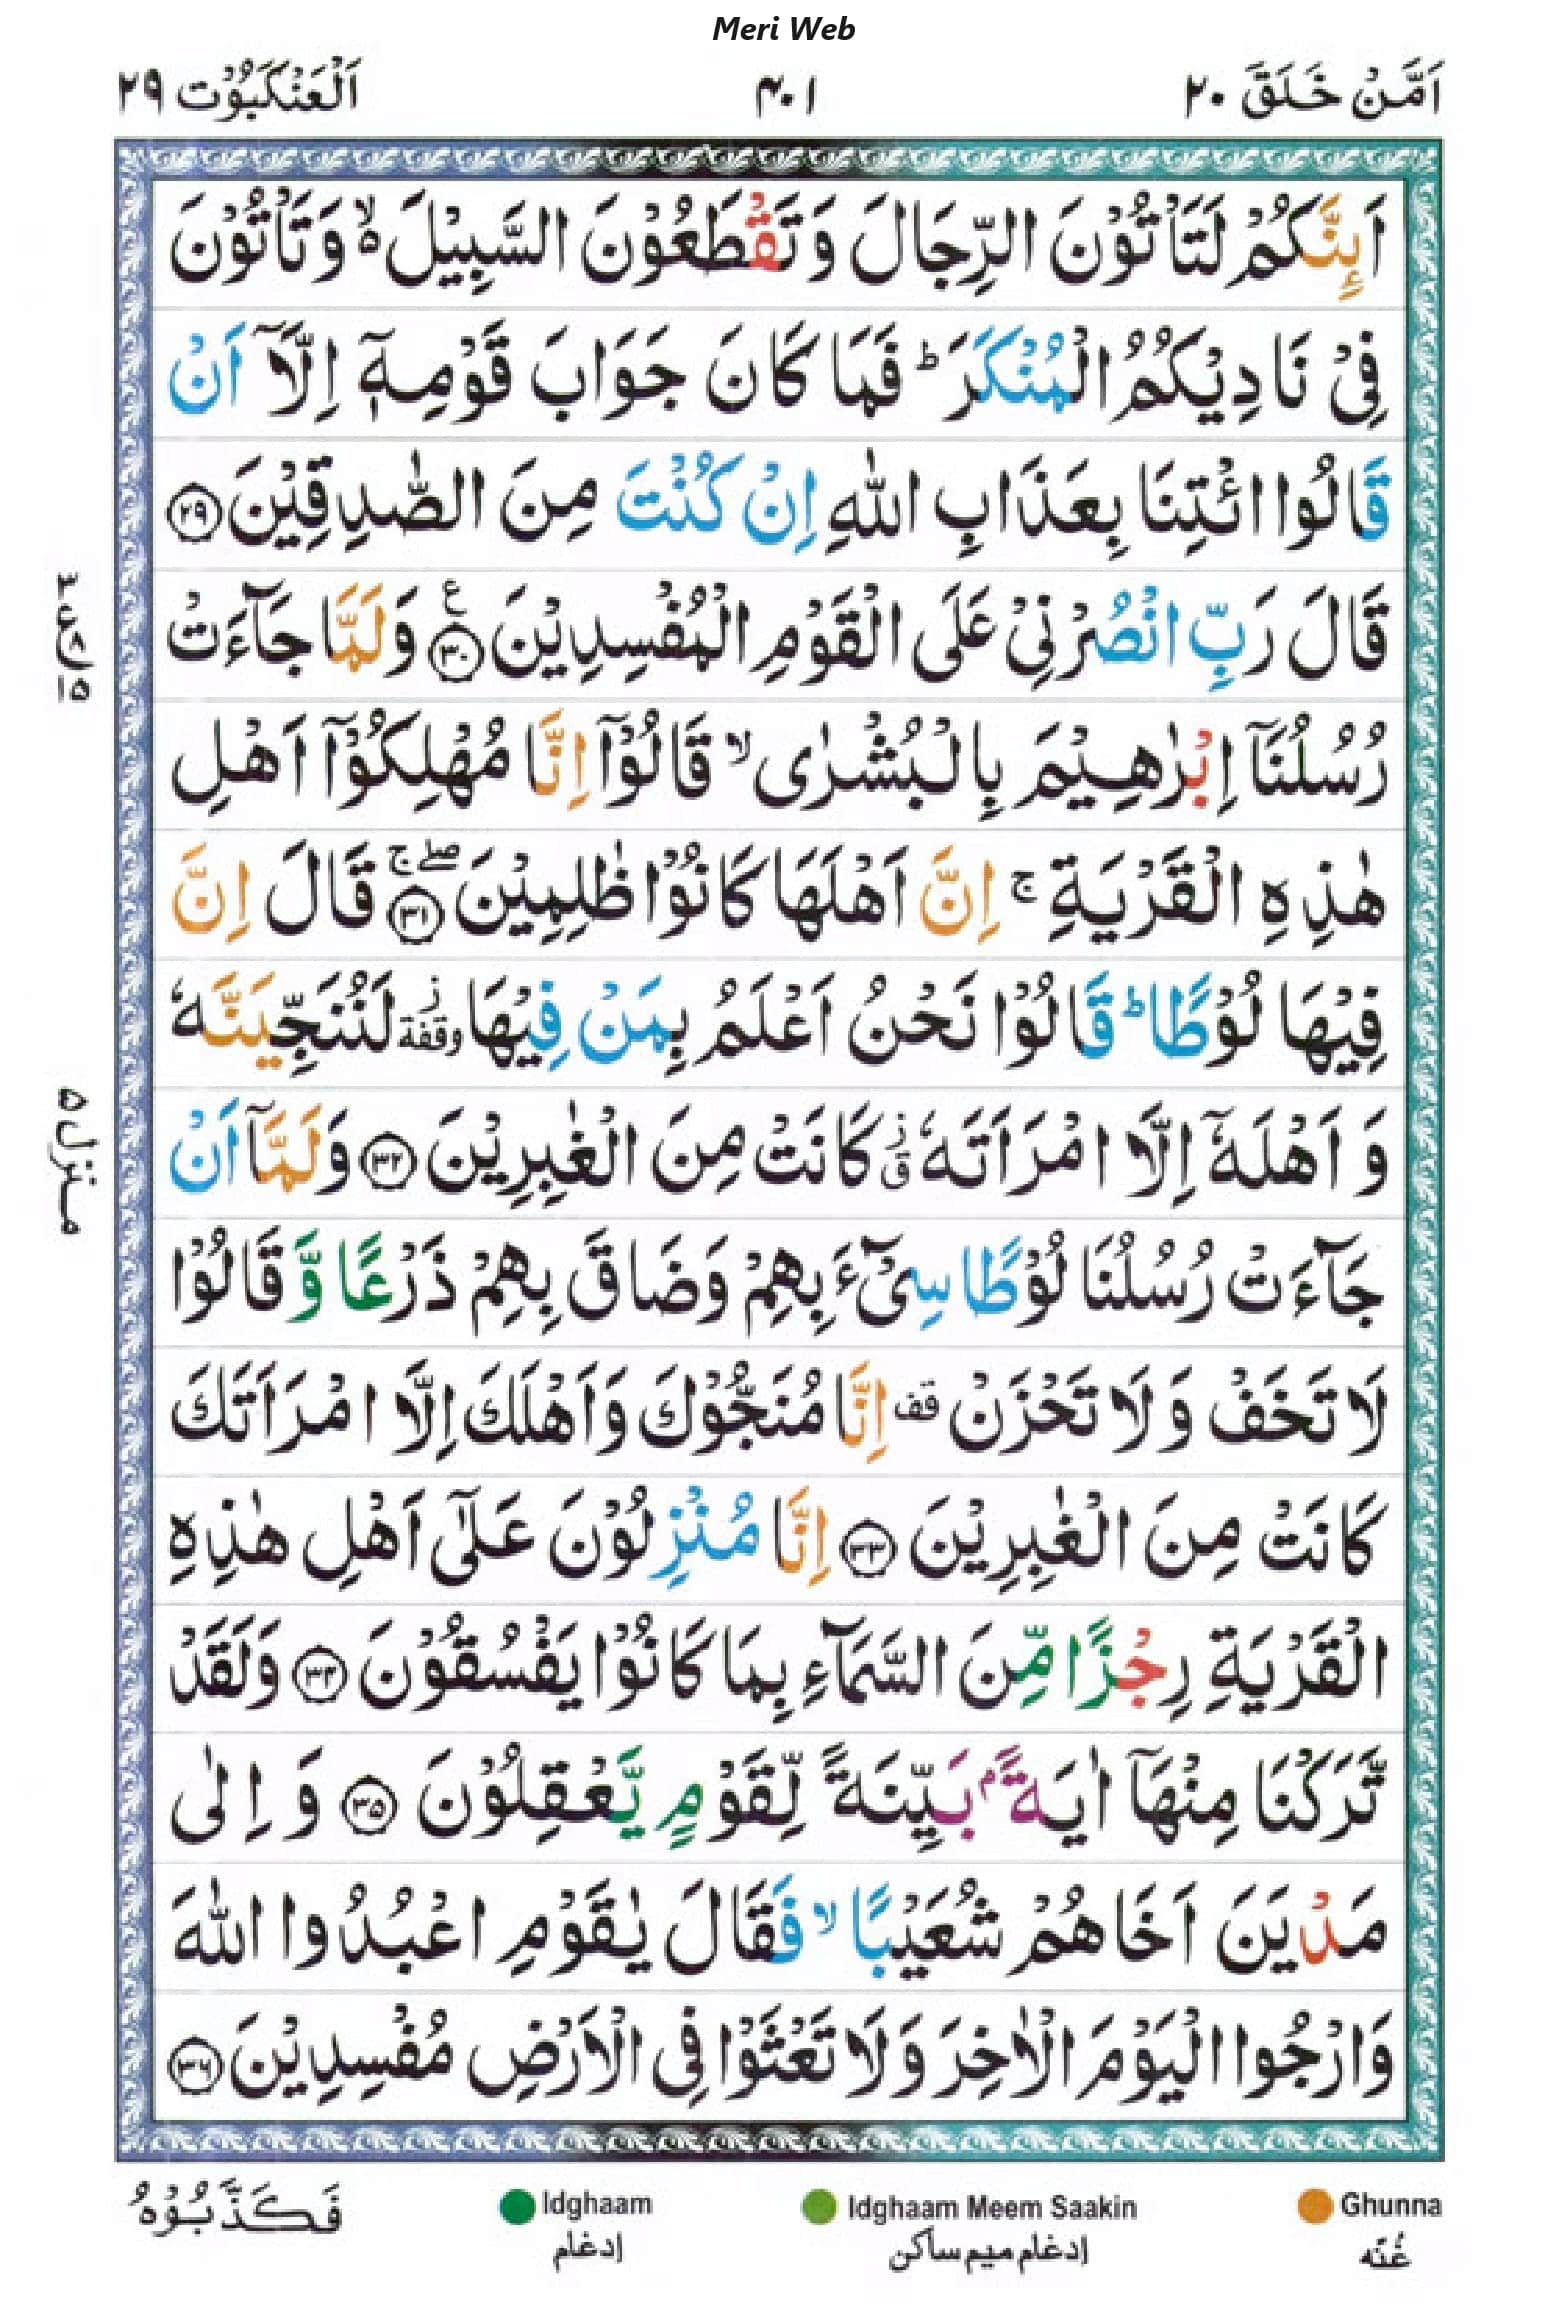 Meri Web
اَمَّنْ خَلَقَ ٢٠
٤٠١
اَلْعَنْكَبُوْت ٢٩
اَىِٕنَّكُمْ لَتَاْتُوْنَ الرِّجَالَ وَتَقْطَعُوْنَ السَّبِيْلَ ۙ۬ وَتَاْتُوْنَ
فِيْ نَادِيْكُمُ الْمُنْكَرَ ؕ فَمَا كَانَ جَوَابَ قَوْمِهٖۤ اِلَّاۤ اَنْ
قَالُوا ائْتِنَا بِعَذَابِ اللّٰهِ اِنْ كُنْتَ مِنَ الصّٰدِقِيْنَ ٢٩
قَالَ رَبِّ انْصُرْنِيْ عَلَى الْقَوْمِ الْمُفْسِدِيْنَ ٣٠ ع وَلَمَّا جَآءَتْ
رُسُلُنَاۤ اِبْرٰهِيْمَ بِالْبُشْرٰى ۙ قَالُوْۤا اِنَّا مُهْلِكُوْۤا اَهْلِ
هٰذِهِ الْقَرْيَةِ ۚ اِنَّ اَهْلَهَا كَانُوْا ظٰلِمِيْنَ ۖۚ ٣١ قَالَ اِنَّ
فِيْهَا لُوْطًا ؕ قَالُوْا نَحْنُ اَعْلَمُ بِمَنْ فِيْهَا ز وقفة لَنُنَجِّيَنَّهٗ
وَ اَهْلَهٗۤ اِلَّا امْرَاَتَهٗ ز ق كَانَتْ مِنَ الْغٰبِرِيْنَ ٣٢ وَلَمَّاۤ اَنْ
جَآءَتْ رُسُلُنَا لُوْطًا سِيْٓءَ بِهِمْ وَضَاقَ بِهِمْ ذَرْعًا وَّ قَالُوْا
لَا تَخَفْ وَ لَا تَحْزَنْ قف اِنَّا مُنَجُّوْكَ وَاَهْلَكَ اِلَّا امْرَاَتَكَ
كَانَتْ مِنَ الْغٰبِرِيْنَ ٣٣ اِنَّا مُنْزِلُوْنَ عَلٰۤى اَهْلِ هٰذِهِ
الْقَرْيَةِ رِجْزًا مِّنَ السَّمَآءِ بِمَا كَانُوْا يَفْسُقُوْنَ ٣٤ وَلَقَدْ
تَّرَكْنَا مِنْهَاۤ اٰيَةًۢ بَيِّنَةً لِّقَوْمٍ يَّعْقِلُوْنَ ٣٥ وَ اِلٰى
مَدْيَنَ اَخَاهُمْ شُعَيْبًا ۙ فَقَالَ يٰقَوْمِ اعْبُدُوا اللّٰهَ
وَارْجُوا الْيَوْمَ الْاٰخِرَ وَلَا تَعْثَوْا فِى الْاَرْضِ مُفْسِدِيْنَ ٣٦
منزل ٥
فَكَذَّبُوْهُ
Idghaam
إدغام
Idghaam Meem Saakin
إدغام ميم ساكن
Ghunna
غُنّه